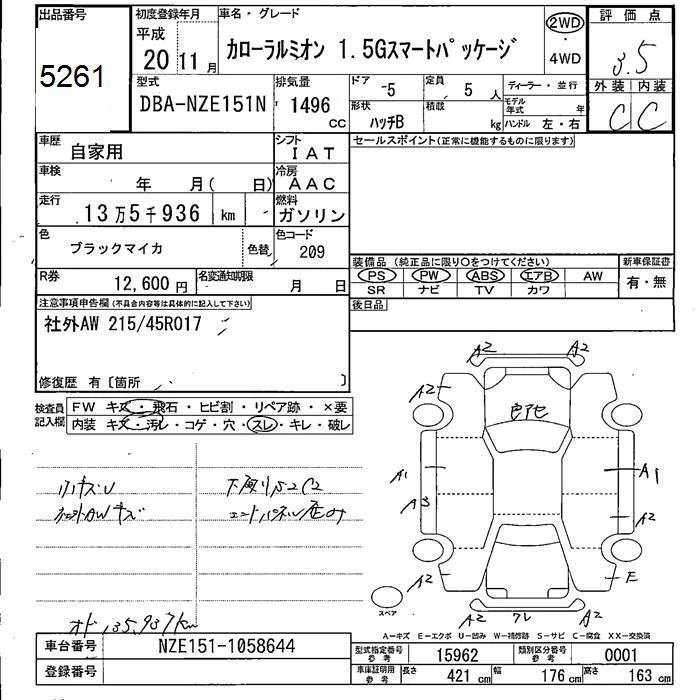 出品番号 初度登録年月 車名・グレード 2WD 評価点
5261 平成 20 11月 カローラルミオン 1.5Gスマートパッケージ 4WD 3.5
型式 排気量 ドア -5 定員 5人 ディーラー・並行 外装 内装
DBA-NZE151N 1496 CC 形状 ハッチB 積載 kg モデル年式 年 C C
ハンドル 左・右
車歴 自家用 シフト IAT セールスポイント(正常に機能するものに限ります)
車検 年 月( 日) 冷房 AAC
走行 13万5千936 km 燃料 ガソリン
色 ブラックマイカ 色替 色コード 209
装備品 (純正品に限り○をつけてください) 新車保証書
R券 12,600円 名変通知期限 月 日 PS PW ABS エアB AW 有・無
SR ナビ TV カワ
注意事項申告欄(不具合内容等は具体的に記入して下さい) 後日品
社外AW 215/45R017
修復歴 有〔箇所 〕
検査員記入欄 FW キズ・飛石・ヒビ割・リペア跡・×要
内装 キズ・汚レ・コゲ・穴・スレ・キレ・破レ
A2 A2
A2
A1 A1
A3 A2
A2 E
小キズU 下廻りS2C2
社外AWキズ
オド135,937km
スペア
A2 A2
A―キズ E―エクボ U―凹み W―補修跡 S―サビ C―腐食 XX―交換済
車台番号 NZE151-1058644 型式指定番号 参考 15962 類別区分番号 参考 0001
登録番号 車庫証明用 参考 長さ 421cm 幅 176cm 高さ 163cm